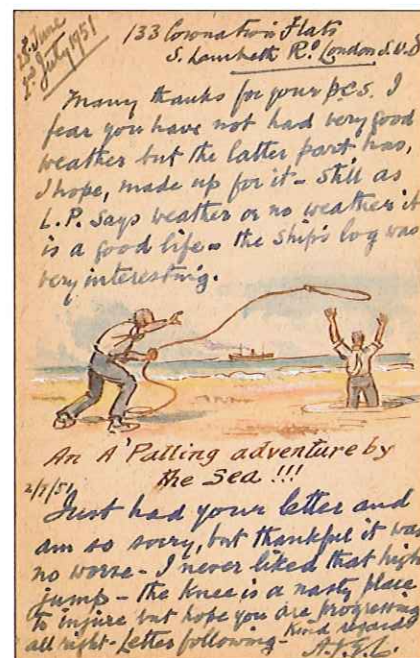 28. June
2nd July 1951
133 Coronation Flats
S. Lambeth Rd London S.W.8
Many thanks for your p.c.s. I
fear you have not had very good
weather but the latter part has,
I hope, made up for it - Still as
L.P. says weather or no weather it
is a good life - the ship's log was
very interesting.
An A'Palling adventure by
the Sea !!!
2/7/51
Just had your letter and
am so sorry, but thankful it was
no worse - I never liked that high
jump - the knee is a nasty place
to injure but hope you are progressing
all right - Letter following - Kind regards